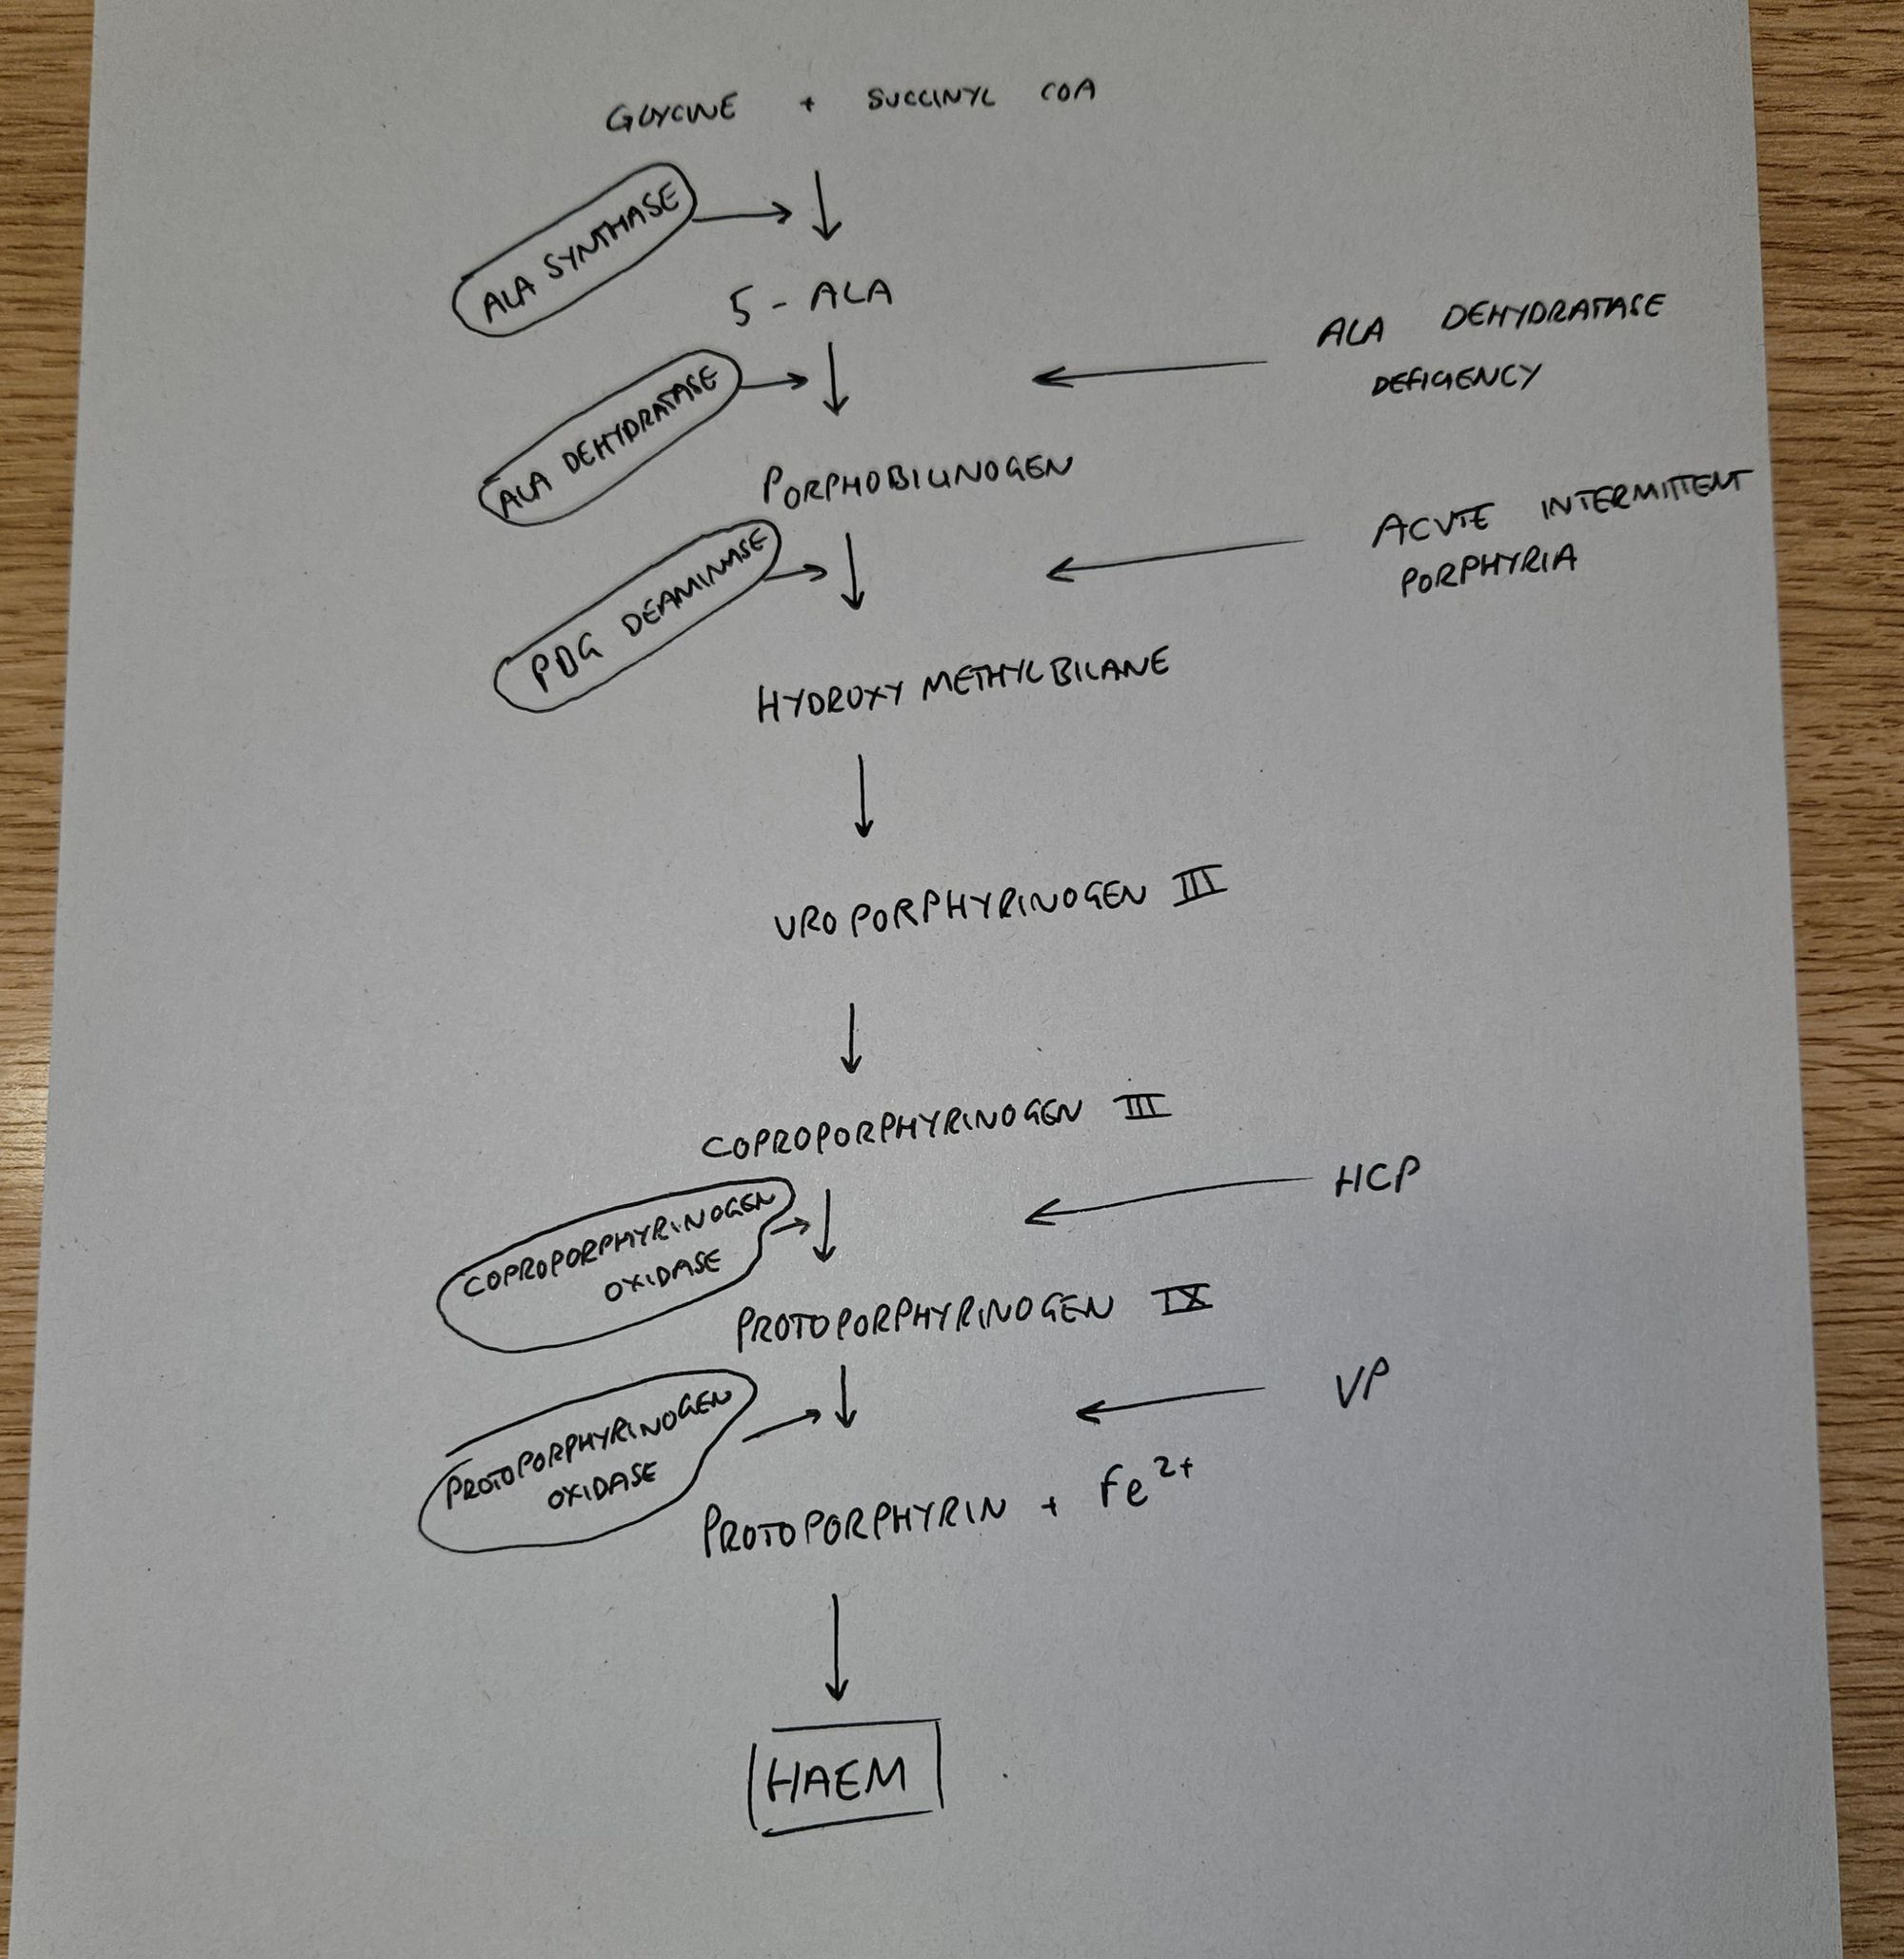 GLYCINE + SUCCINYL COA
ALA SYNTHASE
5 - ALA
ALA DEHYDRATASE
DEFICIENCY
ALA DEHYDRATASE
PORPHOBILINOGEN
ACUTE INTERMITTENT
PORPHYRIA
PBG DEAMINASE
HYDROXY METHYLBILANE
UROPORPHYRINOGEN III
COPROPORPHYRINOGEN III
HCP
COPROPORPHYRINOGEN
OXIDASE
PROTOPORPHYRINOGEN IX
VP
PROTOPORPHYRINOGEN
OXIDASE
PROTOPORPHYRIN + Fe²⁺
HAEM